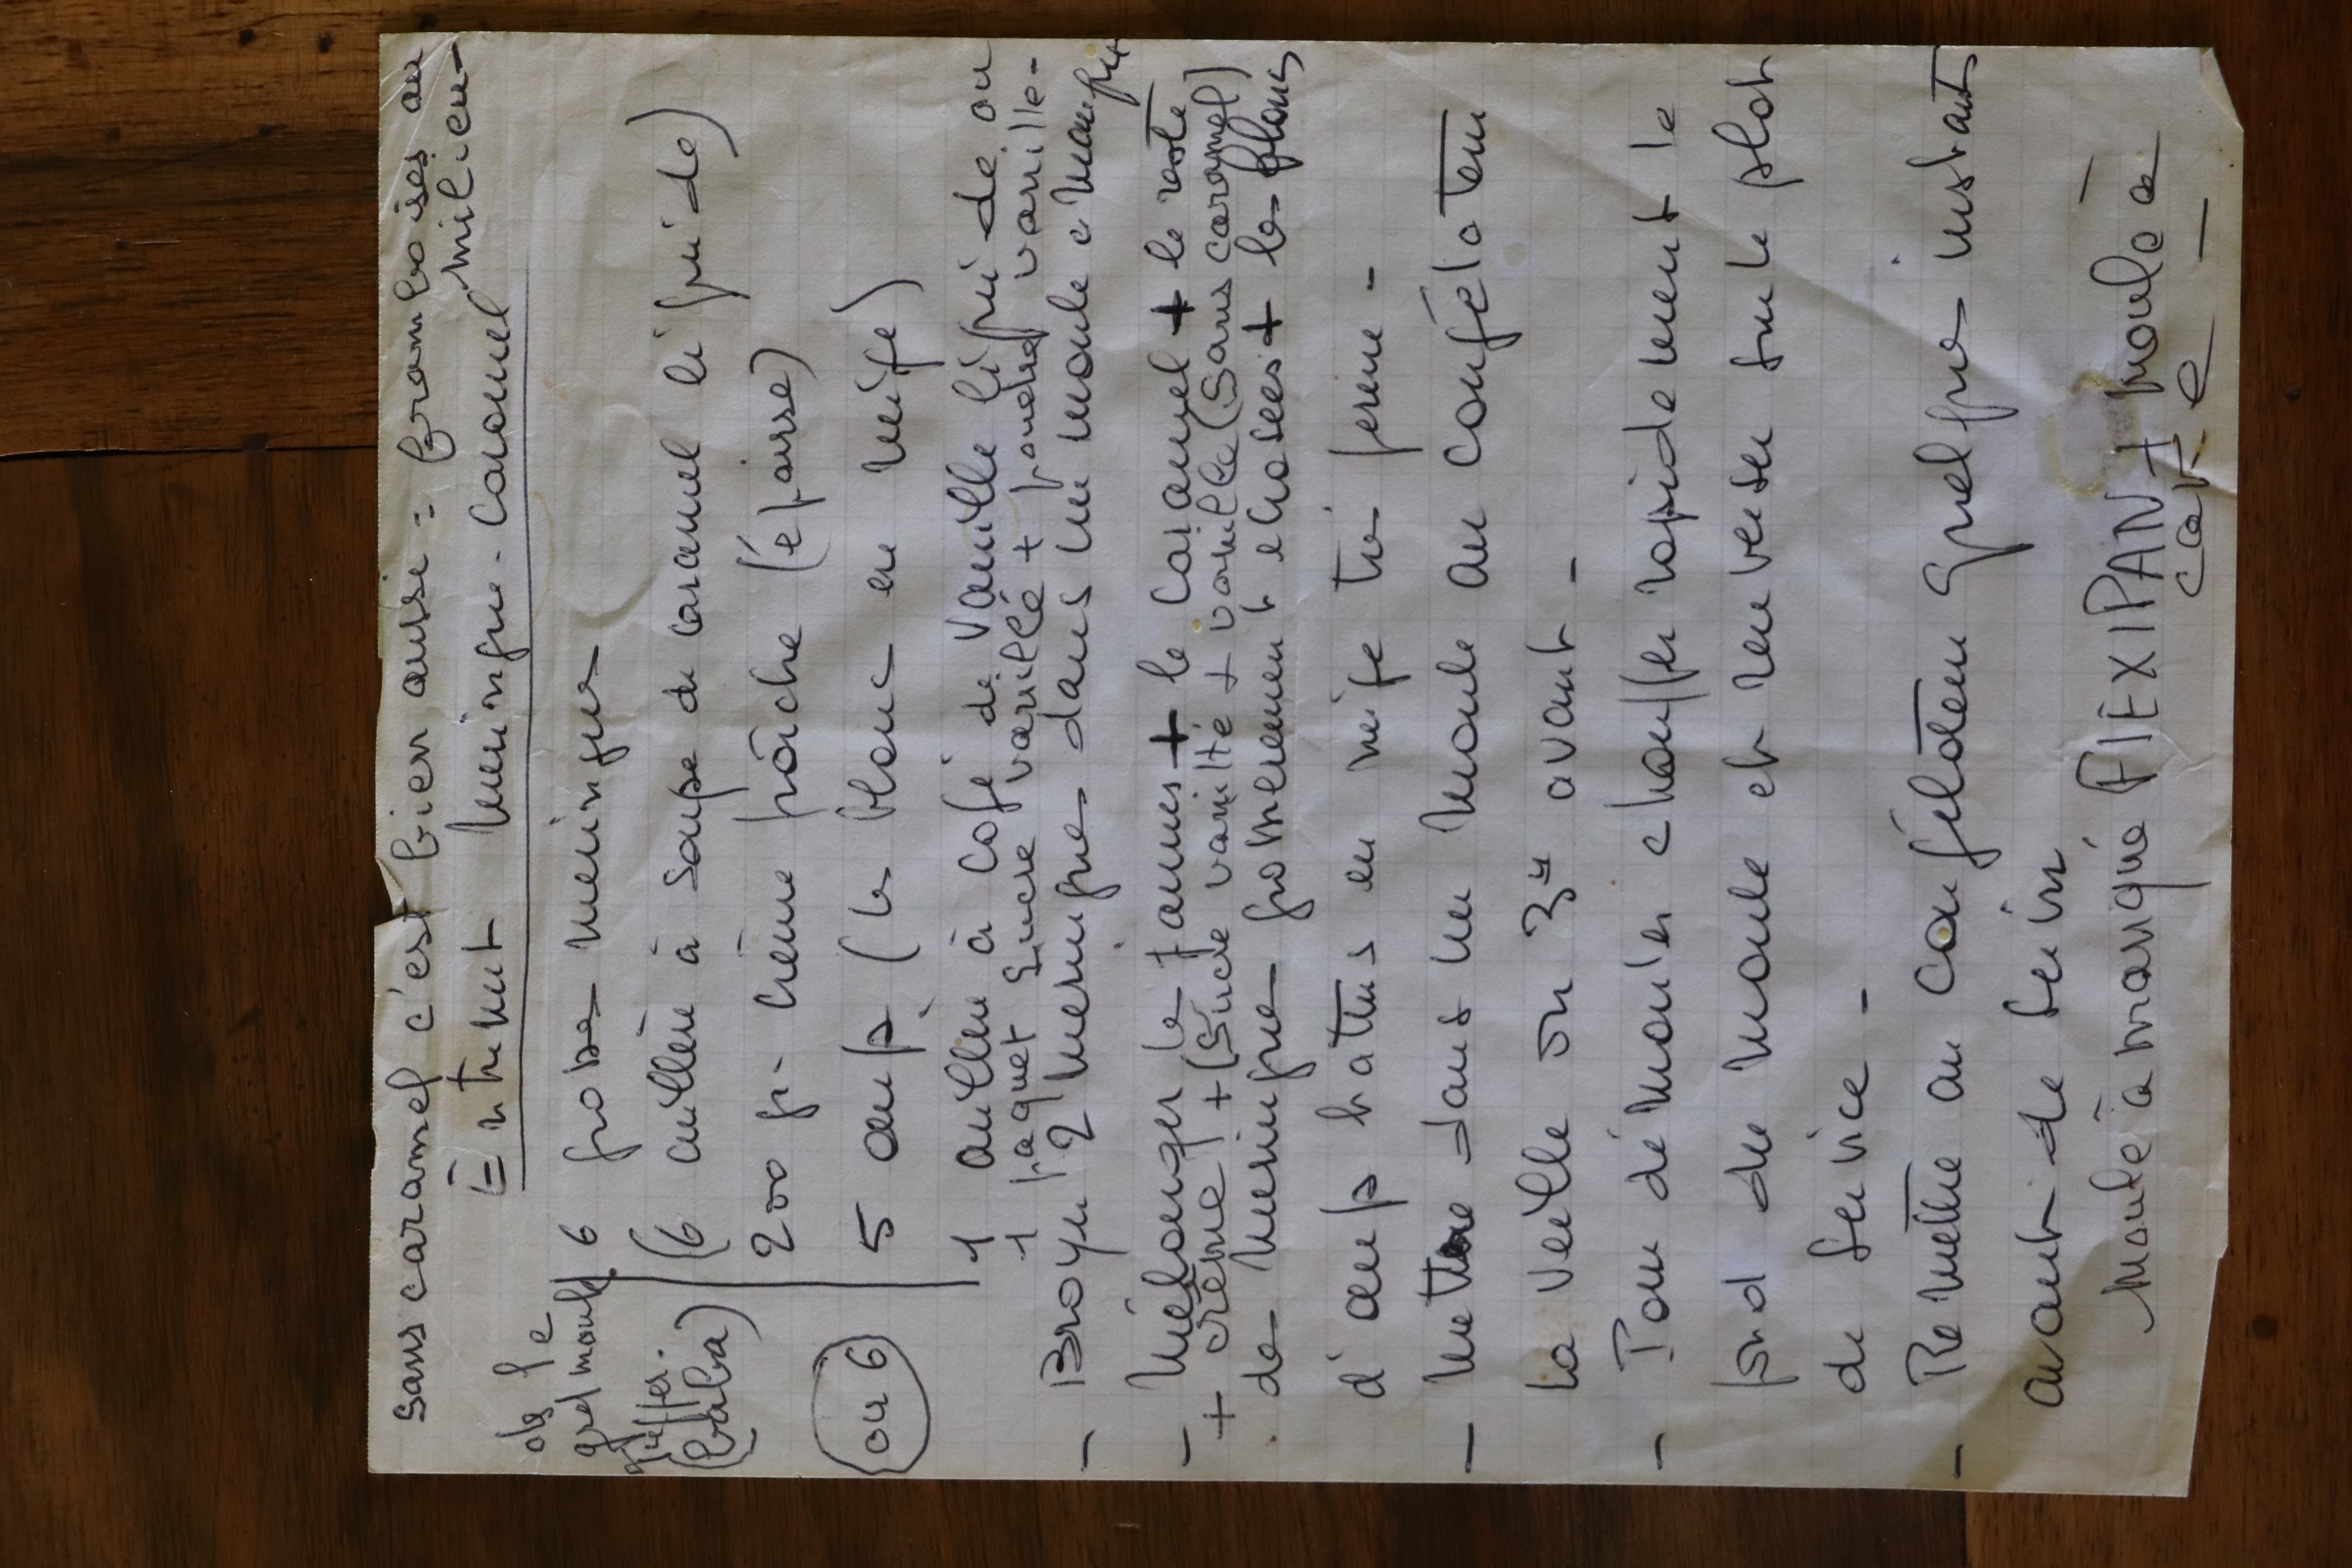 sans caramel c'est bien aussi = framboises au milieu-
Entremet meringue-caramel
ds le grd moule Tieffer. (baba)
6 grosses meringues
(6 cuillère à soupe de caramel liquide)
200 gr crème fraîche (épaisse)
5 œufs (les blancs en neige)
ou 6
1 cuillère à café de vanille liquide ou
1 paquet sucre vanillé + poudre vanille-
- Broyer 2 meringues dans un moule à manqué
- Mélanger les jaunes + le caramel + le reste
+ crème + (sucre vanillé + vanille (sans caramel)
de meringues grossièrement écrasées + les blancs
d'œufs battus en neige très ferme-
- Mettre dans un moule au congélateur
la veille ou 3H avant-
- Pour démouler chauffer rapidement le
fond du moule et renverser sur le plat
de service-
- Remettre au congélateur quelques instants
avant de servir
Moule à manqué FlEXIPAN + moule à
cake-